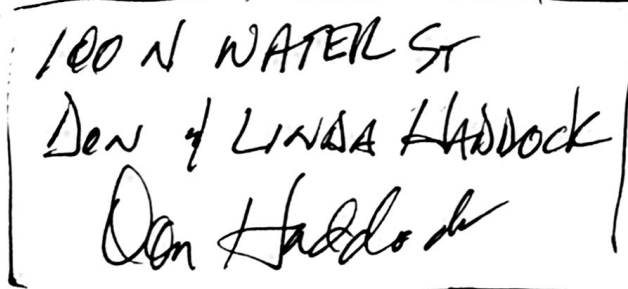 100 N WATER ST
DON & LINDA HADDOCK
Don Haddock